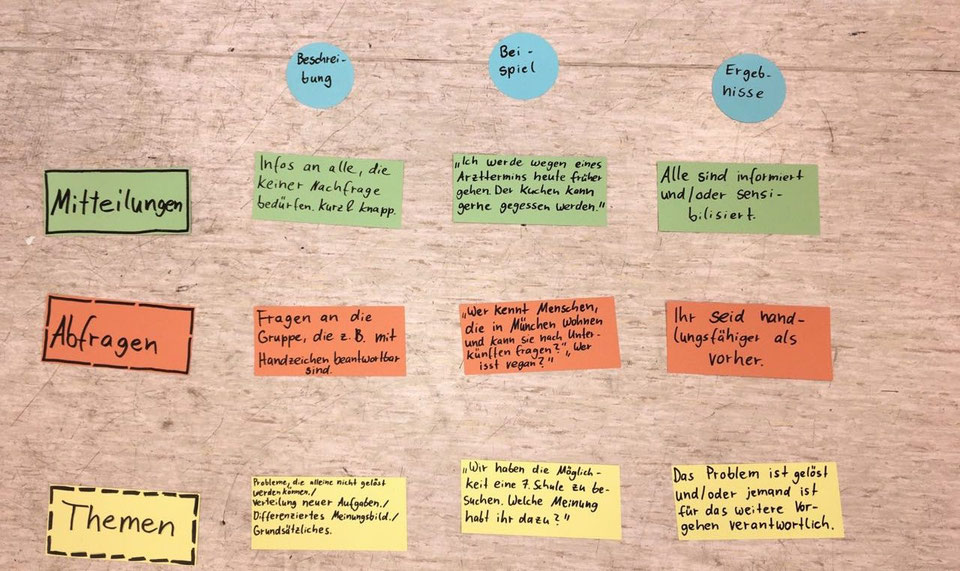 Beschrei-
bung
Bei-
spiel
Ergeb-
nisse
Mitteilungen
Infos an alle, die
keiner Nachfrage
bedürfen. Kurz & knapp.
„Ich werde wegen eines
Arzttermins heute früher
gehen. Der Kuchen kann
gerne gegessen werden."
Alle sind informiert
und/oder sensi-
bilisiert.
Abfragen
Fragen an die
Gruppe, die z.B. mit
Handzeichen beantwortbar
sind.
„Wer kennt Menschen,
die in München wohnen
und kann sie nach Unter-
künften fragen?" „Wer
isst vegan?"
Ihr seid hand-
lungsfähiger als
vorher.
Themen
Probleme, die alleine nicht gelöst
werden können./
Verteilung neuer Aufgaben./
Differenziertes Meinungsbild./
Grundsätzliches.
„Wir haben die Möglich-
keit eine 7. Schule zu be-
suchen. Welche Meinung
habt ihr dazu?"
Das Problem ist gelöst
und/oder jemand ist
für das weitere Vor-
gehen verantwortlich.